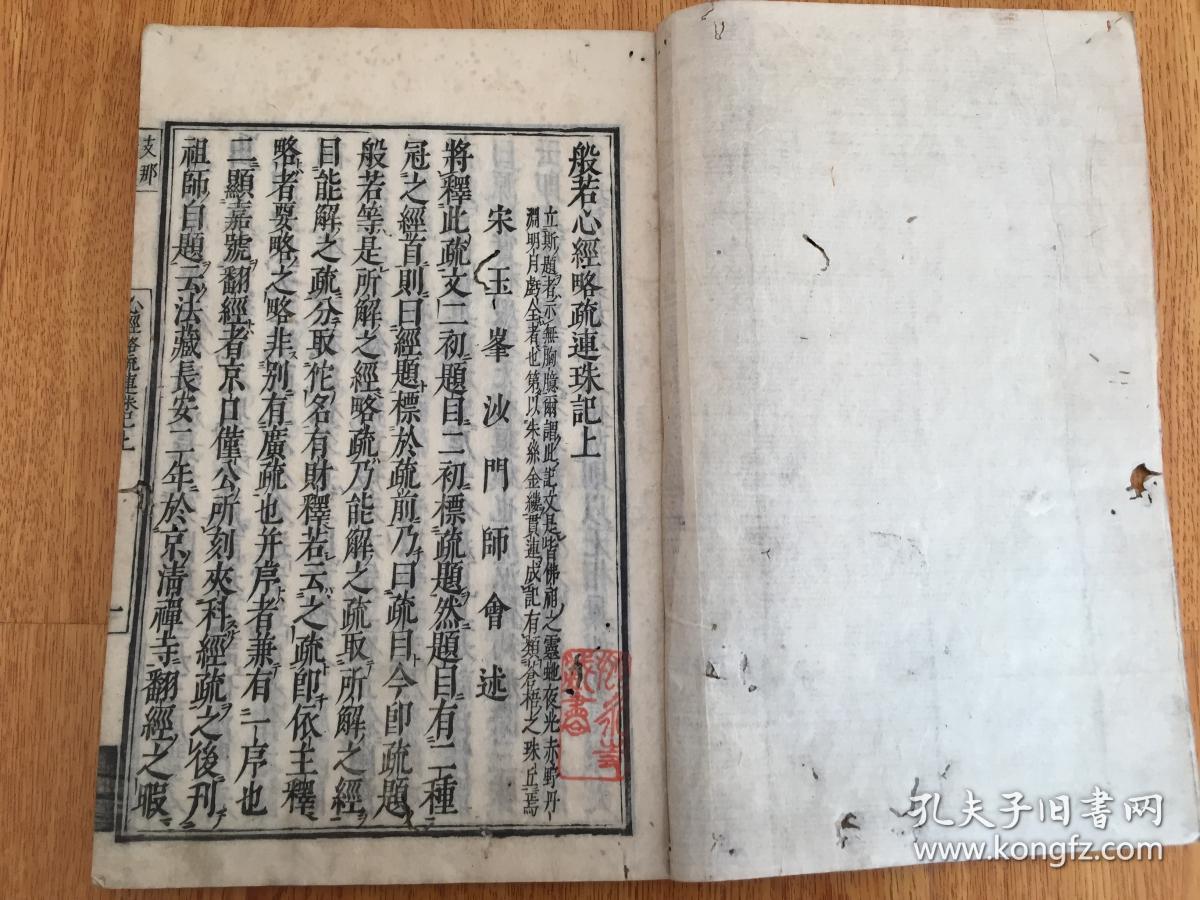 般若心經略疏連珠記上
立斯題者示無胸臆爾謂此記文是皆佛祖之靈虵夜光赤野丹
淵明月虧全者也第以朱絲金縷貫連成記有類蒼梧之珠丘焉
宋玉峯沙門師會述
將釋此疏文二初題目二初標疏題然題目有二種
冠之經首則曰經題標於疏前乃曰疏目今卽疏題
般若等是所解之經略疏乃能解之疏取所解之經
目能解之疏分取佗名有財釋若云之疏卽依主釋
略者要略之略非別有廣疏也并序者兼有一序也
二顯嘉號翻經者京口僅公所刻夾科經疏之後刊
祖師自題云法藏長安二年於京淸禪寺翻經之暇
支那
心經略疏連珠記上
一
藏書
孔夫子旧书网
www.kongfz.com